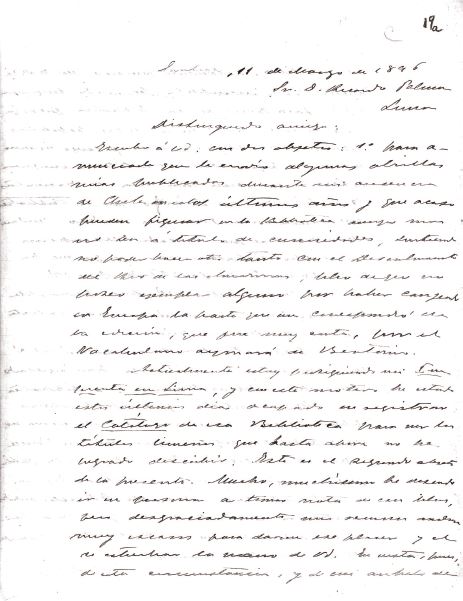 19a
11 de Marzo de 1896
Sr. D. Ricardo Palma
Lima
Distinguido amigo:
Escribo á Ud. con dos objetos: 1.° para a-
nunciarle que le envío algunas obrillas
mias publicadas durante mi ausencia
de Chile en estos últimos años y que acaso
puedan figurar en la Biblioteca aunque mas
no sea á título de curiosidades, sintiendo
no poder hacer otro tanto con el Descubrimiento
del Rio de las Amazonas, pues no
poseo ejemplar alguno por haber
en Europa la parte que me correspondió en
la edicion, que fue muy corta, por el
Vocabulario aymará de Bertonio.
Actualmente estoy prosiguiendo mi Im-
prenta en Lima, y con este motivo he estado
estos últimos dias ocupado en registrar
el Catálogo de esa Biblioteca para ver los
títulos limeños que hasta ahora no he
logrado descubrir. Este es el segundo objeto
de la presente. Mucho, muchísimo he deseado
ir en persona a tomar nota de esos libros,
pero desgraciadamente mis recursos
muy escasos para darme ese placer y el
de estrechar la mano de Ud. En vista, pues,
de esta circunstancia, y de mi anhelo de